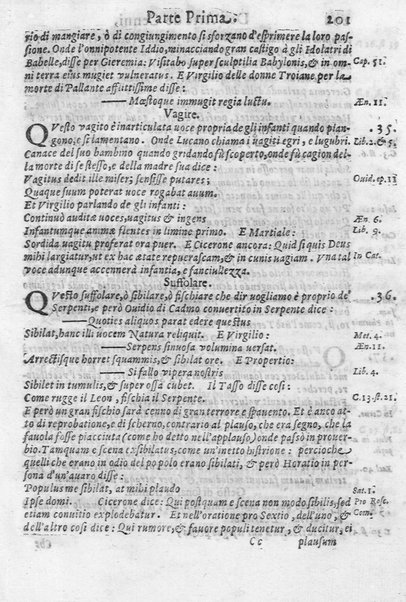 Parte Prima. 201
rio di mangiare, ò di congiungimento si sforzano d'esprimere la loro pas-
sione. Onde l'onnipotente Iddio, minacciando gran castigo à gli Idolatri di
Babelle, disse per Gieremia: Visitabo super sculptilia Babylonis, & in om- Cap. 51.
ni terra eius mugiet vulneratus. E Virgilio delle donne Troiane per la
morte di Pallante afflittissime disse:
—— Mæstoque immugit regia luctu. Æn. 11.
Vagire.
QVesto vagito è inarticulata uoce propria degli infanti quando pian- .35.
gono, e si lamentano. Onde Lucano chiama i vagiti egri, e lugubri. Lib. 2. & 5.
Canace del suo bambino quando gridando fù scoperto, onde fù cagion del-
la morte di se stesso, e della madre sua dice:
Vagitus dedit ille miser; sensisse putares; Ouid. ep. 11
Quaque suum poterat uoce rogabat auum.
Et Virgilio parlando de gli infanti:
Continuò auditæ uoces, vagitus & ingens Æn. 6.
Infantumque animæ flentes in limine primo. E Martiale: Lib. 9.
Sordida uagitu proferat ora puer. E Cicerone ancora: Quid si quis Deus
mihi largiatur, ut ex hac ætate repuerascam, & in cunis uagiam. Vna tal In Cat.
voce adunque accennerà infantia, e fanciullezza.
Suffolare.
QVesto suffolare, ò sibilare, ò fischiare che dir uogliamo è proprio de' .36.
Serpenti, e però Ouidio di Cadmo conuertito in Serpente dice:
—— Quoties aliquos parat edere questus
Sibilat, hanc illi uocem Natura reliquit. E Virgilio: Met. 4.
—— Serpens sinuosa volumina uersat. Æn. 11.
Arrectisque horret squammis, & sibilat ore. E Propertio:
—— Si fallo vipera nostris Lib. 4.
Sibilet in tumulis, & super ossa cubet. Il Tasso disse così:
Come rugge il Leon, fischia il Serpente. C. 13. st. 21.
E però un gran fischio sarà cenno di gran terrore e spauento. Et è anco at-
to di reprobatione, e di scherno, contrario al plauso, che era segno, che la
fauola fosse piacciuta (come ho detto nell'applauso) onde passò in prouer-
bio. Tamquam e scena exsibilatus, come un'inetto histrione: percioche
quelli che erano in odio del popolo erano sibilati, & però Horatio in per-
sona d'un'auaro disse:
Populus me sibilat, at mihi plaudo Sat. 1.
Ipse domi. Cicerone dice: Qui postquam e scena non modo sibilis, sed Pro Rosc.
etiam conuitio explodebatur. Et nell'oratione pro Sextio, dell'uno, & Com.
dell'altro così dice: Qui rumore, & fauore populi tenetur, & ducitur, ei
Cc plausum